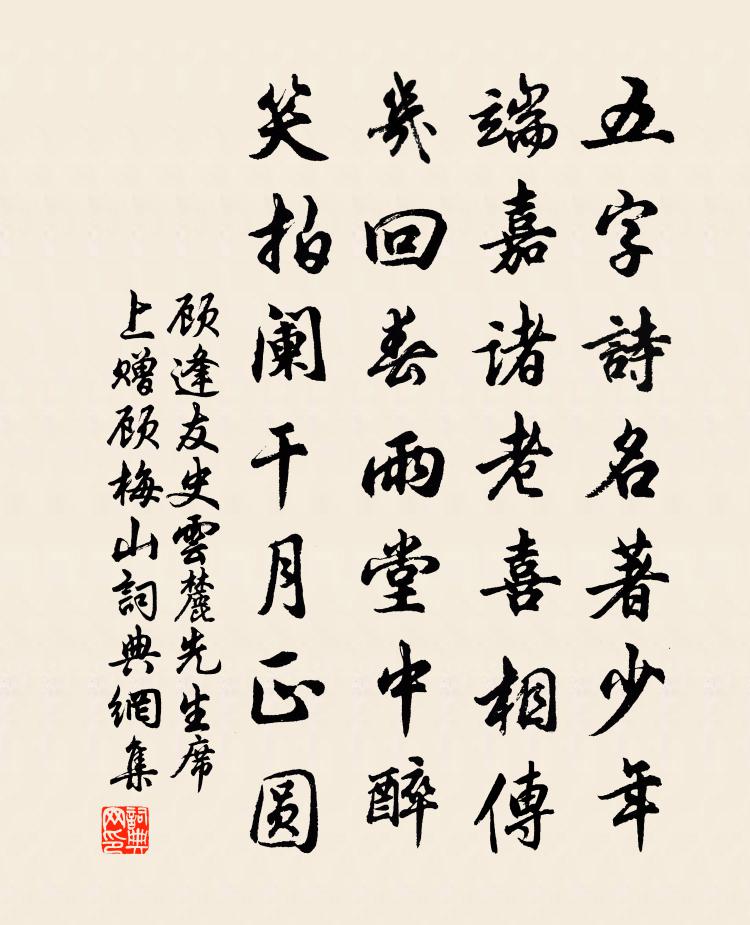 五字詩名著少年
端嘉諸老喜相傳
幾回春雨堂中醉
笑拍闌干月正圓
顾逢友史雲麓先生席
上赠顾梅山詞典網集
詞典
网印